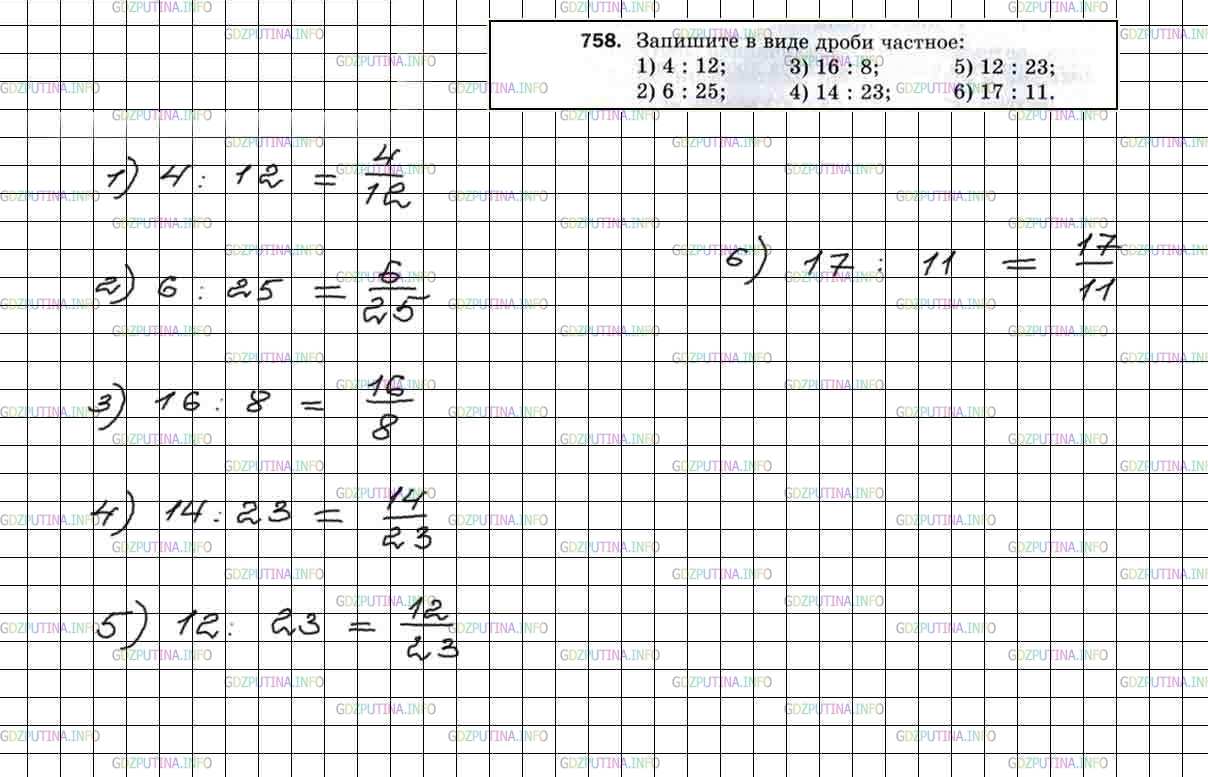 758. Запишите в виде дроби частное:
1) 4 : 12; 3) 16 : 8; 5) 12 : 23;
2) 6 : 25; 4) 14 : 23; 6) 17 : 11.
1) 4 : 12 = 4/12
2) 6 : 25 = 6/25
3) 16 : 8 = 16/8
4) 14 : 23 = 14/23
5) 12 : 23 = 12/23
6) 17 : 11 = 17/11
GDZPUTINA.INFO